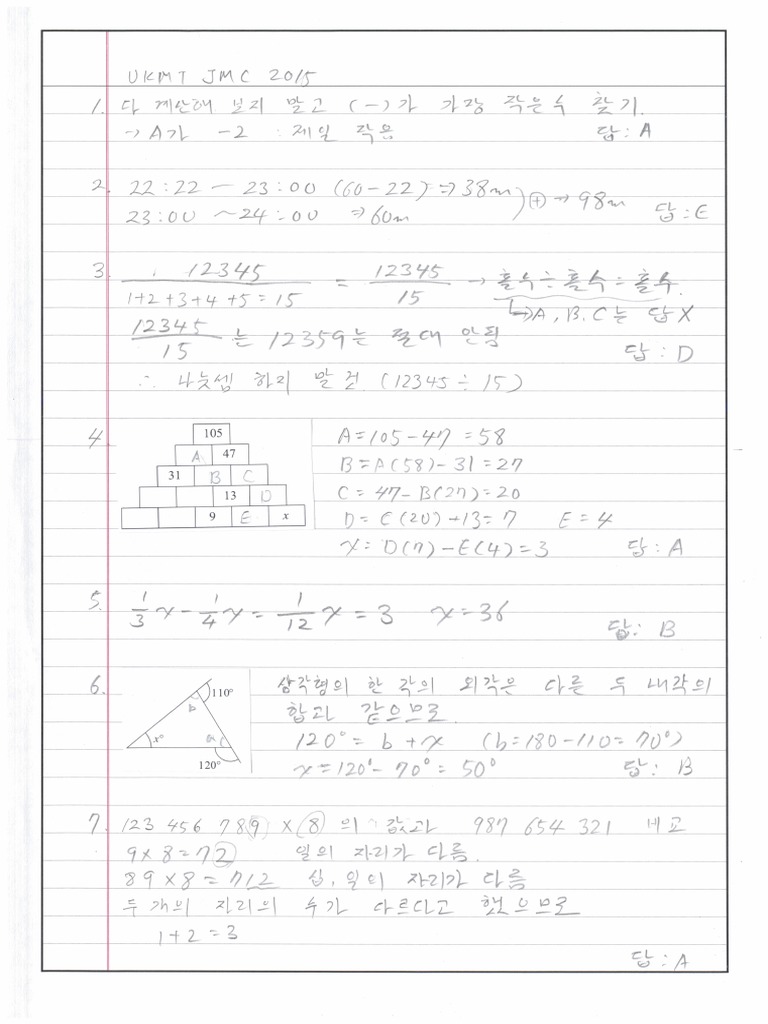 UKMT JMC 2015
1. 다 계산해 보지 말고 (-)가 가장 작은 수 찾기.
→ A가 -2 제일 작음 답 : A
2. 22:22 ~ 23:00 (60-22) ⇒ 38m ) ⊕ → 98m
23:00 ~ 24:00 ⇒ 60m 답 : E
3. 12345 / 1+2+3+4+5=15 = 12345 / 15 → 홀수 ÷ 홀수 = 홀수.
↳ A, B, C는 답 X
12345 / 15 는 12359는 절대 안됨
답 : D
∴ 나눗셈 하지 말 것 (12345 ÷ 15)
4. 105 A=105-47=58
A 47 B=A(58)-31=27
31 B C C=47-B(27)=20
13 D D=C(20)+13=7 E=4
9 E x x=D(7)-E(4)=3 답 : A
5. 1/3 x - 1/4 x = 1/12 x = 3 x=36
답: B
6. 삼각형의 한 각의 외각은 다른 두 내각의
110° b 합과 같으므로.
x° a 120°=b+x (b=180-110=70°)
120° x=120°-70°=50° 답: B
7. 123 456 789 × 8 의 값과 987 654 321 비교
9×8=72 일의 자리가 다름.
89×8=712 십, 일의 자리가 다름
두 개의 자리의 수가 다르다고 했으므로
1+2=3
답 : A